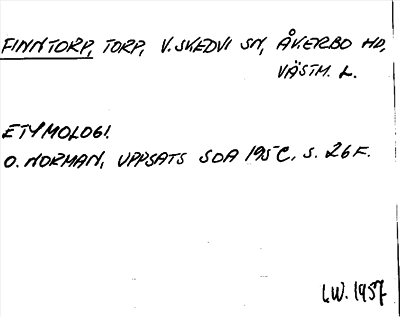 FINNTORP, TORP, V. SKEDVI SN, ÅKERBO HD,
VÄSTM. L.
ETYMOLOGI.
O. NORMAN, UPPSATS SOA 195C, S. 26 F.
I.W. 1957